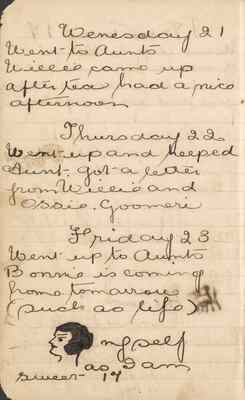 Wenesday 21
Went to Aunts
Willie came up
after tea had a nice
afternoon
Thursday 22
Went up and helped
Aunt, got a letter
from Willie and
Ossie. Goomeri
Friday 23
Went up to Aunts
Bonnie is coming
home tomorrow
(such as life)
myself
as I am
sweet 17